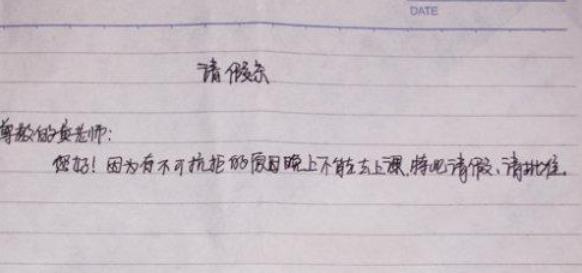 DATE
请假条
尊敬的姜老师:
您好!因为有不可抗拒的原因晚上不能去上课,特此请假、请批准.